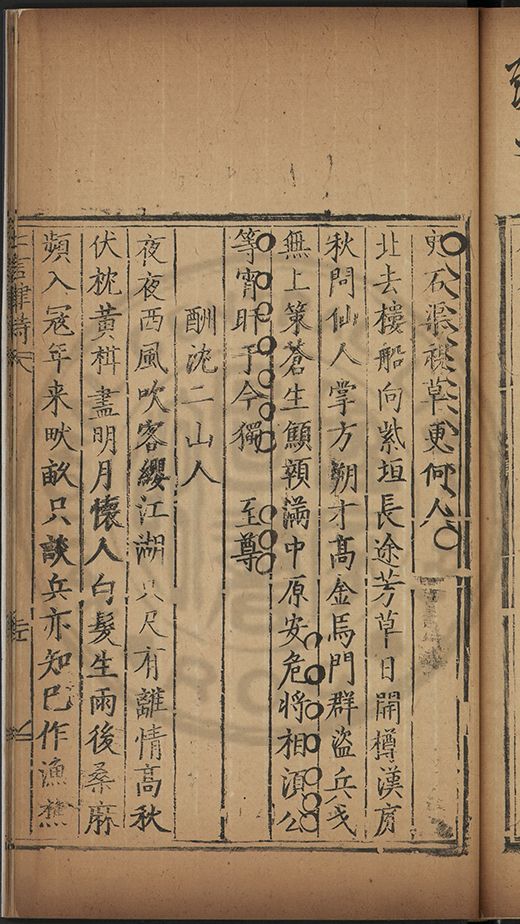 石渠視草更何人
北去樓船向紫垣長途芳草日開樽漢庭
秋問仙人掌方朔才高金馬門群盜兵戈
無上策蒼生滿中原安危將相湏公
等宵旰于今獨 至尊
酬沈二山人
夜夜西風吹客纓江湖只尺有離情高秋
伏枕黄楫盡明月懷人白髮生雨後桑麻
頻入冦年来畎畝只談兵亦知巳作漁樵
七言律詩